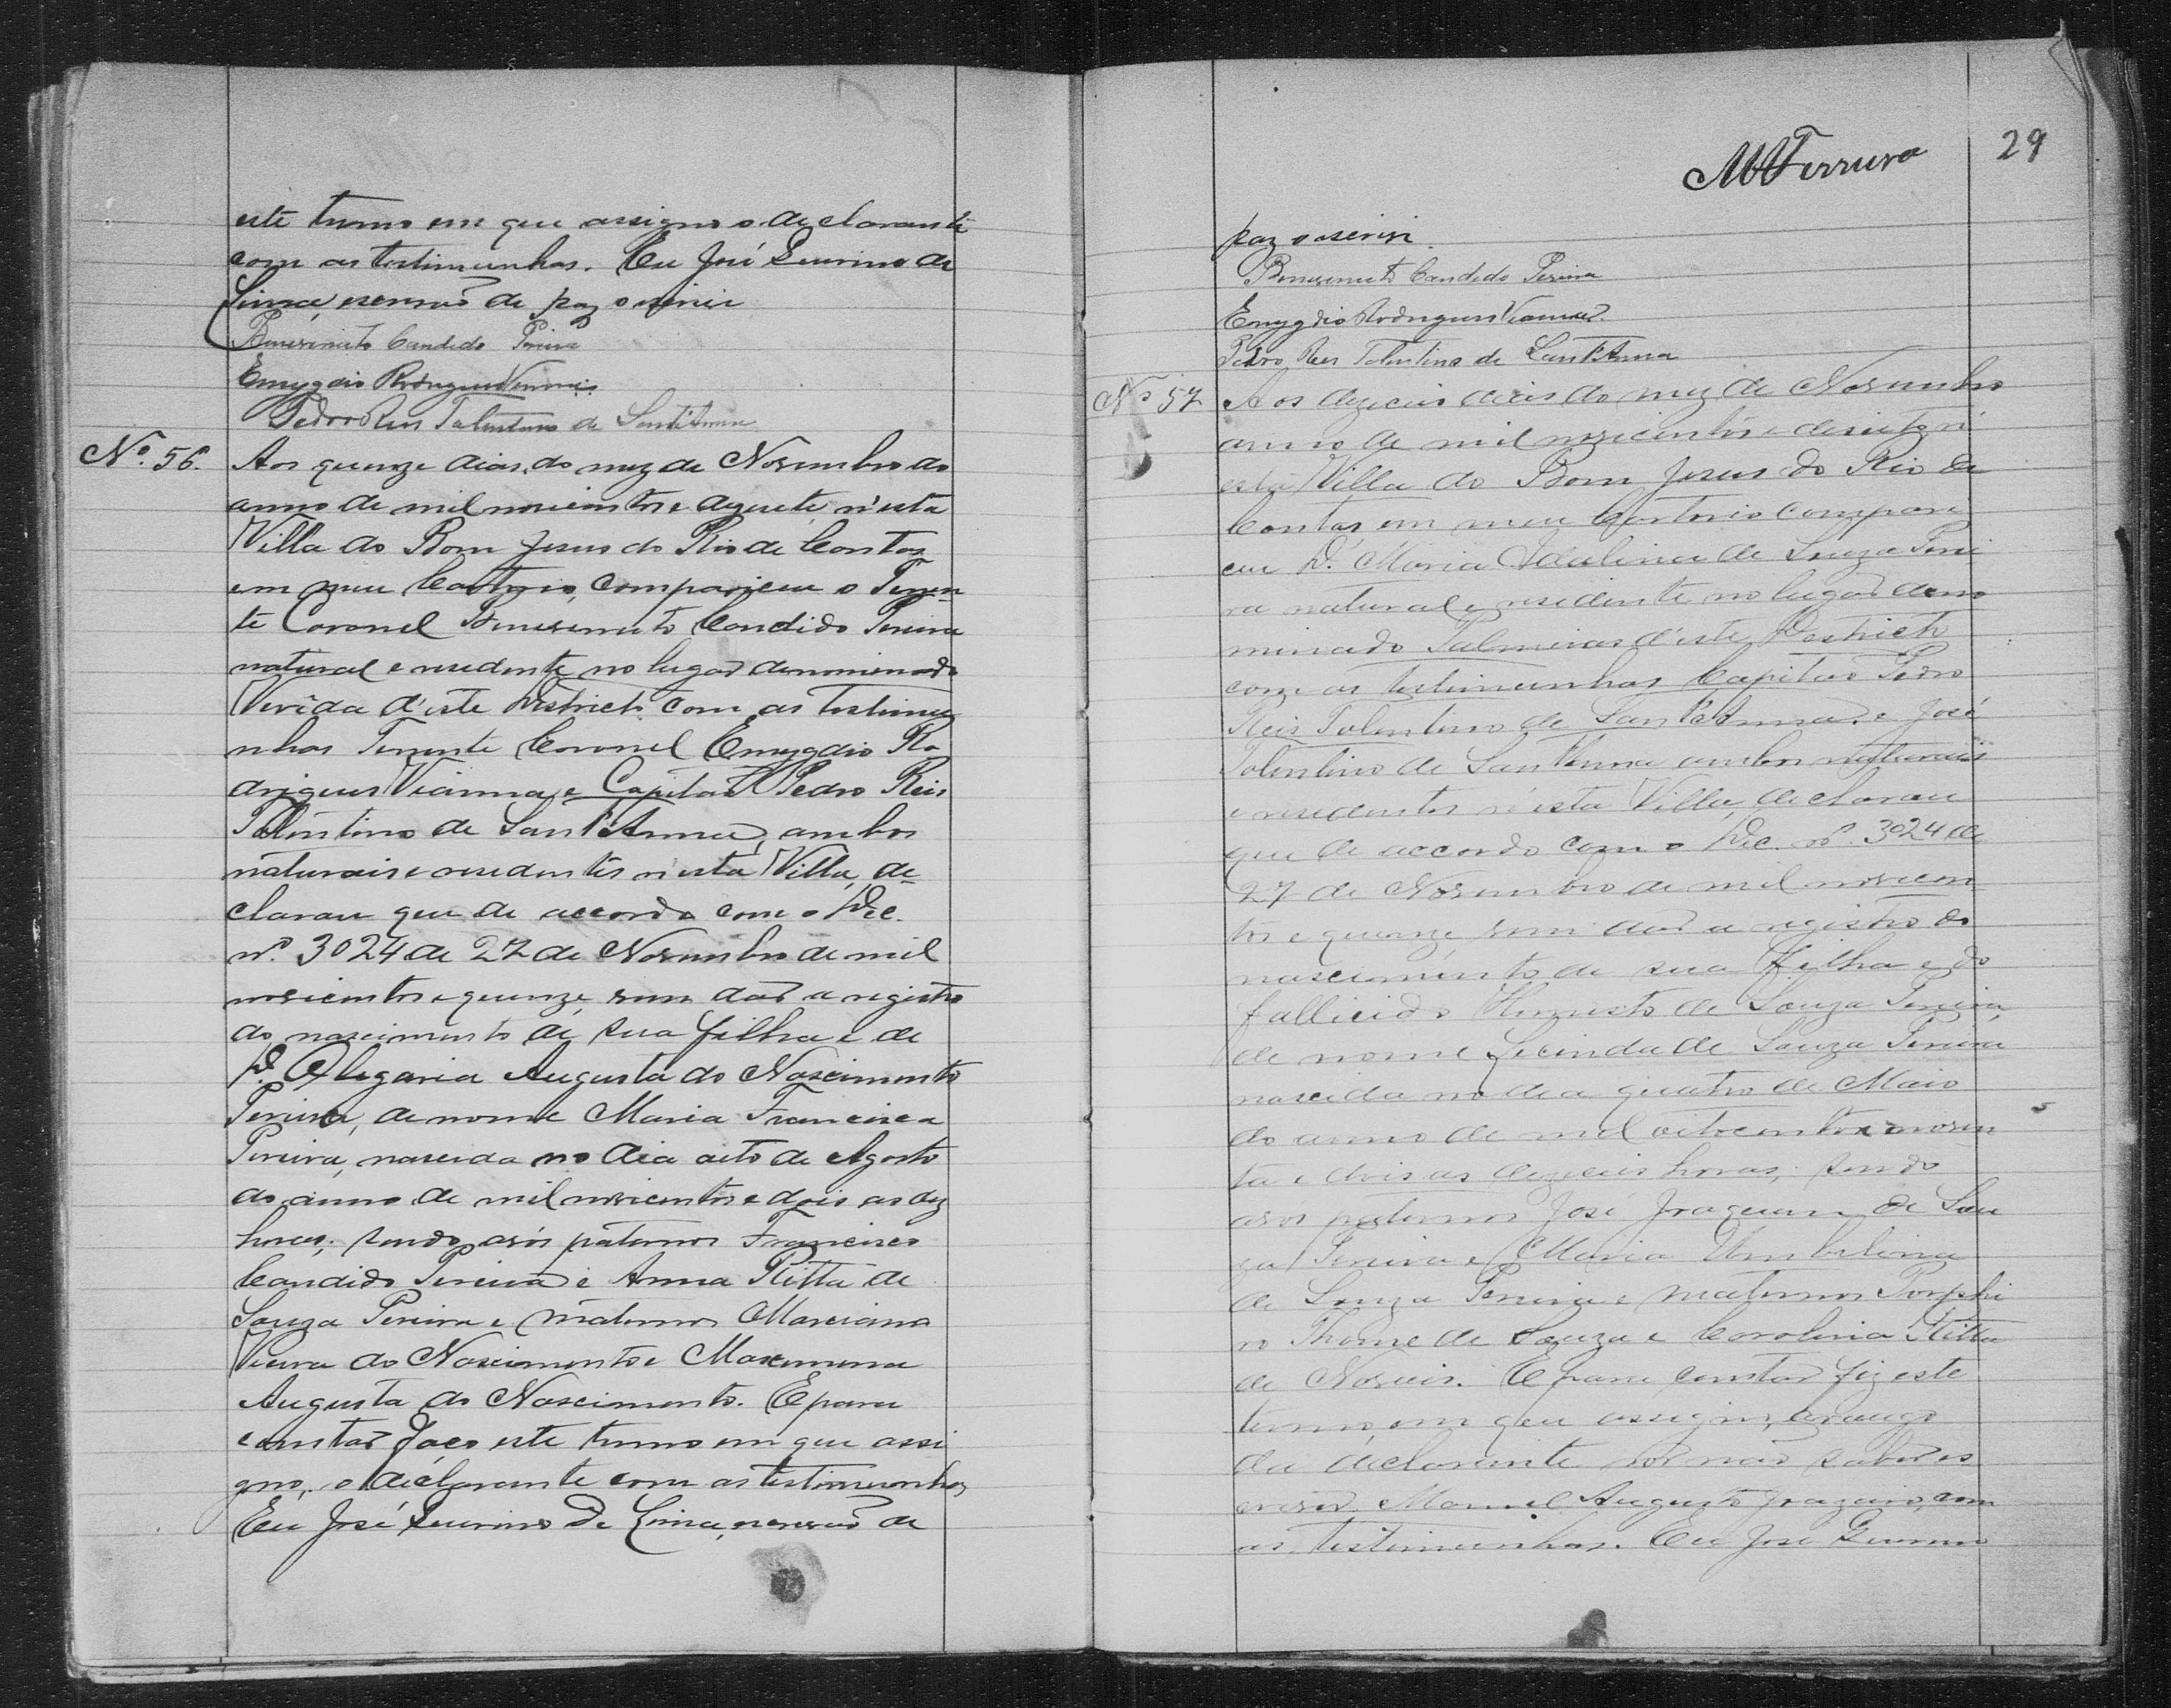 este termo em que assigno o declarante
com as testimunhas. Eu José Leurino de
Lima, escrivão de paz o escrivi
Benvenuto Candido Pereira
Emygdio Rodrigues Vianna
Pedro Reis Tolentino de Sant'Anna
Nº. 56. Aos quinze dias do mez de Novembro do
anno de mil novicentos e dezesete, n'esta
Villa do Bom Jesus do Rio de Contas
em meu Cartorio, compariceu o Tenen-
te Coronel Benvenuto Candido Pereira
natural e residente no lugar denominado
d'este Districto com as testimu
nhas Tenente Coronel Emygdio Ro
drigues Vianna, e Capitão Pedro Reis
Tolentino de Sant'Anna, ambos
naturais e residentes n'esta Villa, de-
clarou que de accordo com o Dec.
nº. 3024 de 27 de Novembro de mil
novicentos e quinze, vem dar a registro
do nascimento de sua filha e de
D. Olegaria Augusta do Nascimento
Pereira, de nome Maria Francisca
Pereira, nascida no dia oito de Agosto
do anno de mil novicentos e dois as dez
horas; sendo avós paternos Francisco
Candido Pereira e Anna Ritta de
Souza Pereira e maternos Marciano
Vieira do Nascimento e Maximina
Augusta do Nascimento. E para
constar faço este termo em que assi
gno, o declarante com as testimunhas
Eu José Leurino de Lima, escrivão de
MMFerreira 29
paz o escrivi.
Benvenuto Candido Pereira
Emygdio Rodrigues Vianna.
Pedro Reis Tolentino de Sant'Anna
Nº 57 Aos dezeceis dias do mez de Novembro
anno de mil novicentos e deseete n'
esta Villa do Bom Jesus do Rio de
Contas, em meu Cartorio compare
ceu D. Maria Idalina de Souza Perei
ra natural e residente no lugar deno
minado Palmeiras d'este Destricto
com as testimunhas Capitão Pedro
Reis Tolentino de Sant'Anna e José
Tolentino de Sant'Anna ambos naturais
e residentes n'esta Villa, declarou
que de accordo com o Dec. nº. 3024 de
27 de Novembro de mil novicen
tos e quinze vem dar a registro do
nascimento de sua filha e do
fallicido de Souza Pereira,
de nome Lucinda de Souza Pereira
nascida no dia quatro de Maio
do anno de mil oitocentos e noven
ta e dois as dezeceis horas, sendo
avos paternos José Joaquim de Sou
za Pereira e Maria Umbelina
de Souza Pereira e maternos Porphi
ro Thome de Souza e Carolina Ritta
de Novais. E para constar fiz este
termo, em que assigno, a rougo
da declarante por não saber es
crever Manuel Augusto com
as testimunhas. Eu José Leurino